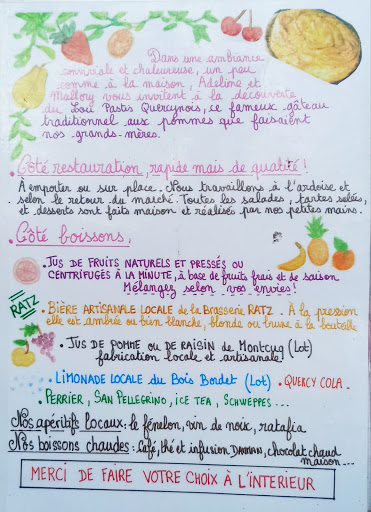 Dans une ambiance
conviviale et chaleureuse, un peu
comme à la maison, Adeline et
Mallory vous invitent à la découverte
du Lou Pastis Quercynois, ce fameux gâteau
traditionnel aux pommes que faisaient
nos grands-mères.
• Côté restauration, rapide mais de qualité !
À emporter ou sur place. Nous travaillons à l'ardoise et
selon le retour du marché. Toutes les salades, tartes salées,
et desserts sont faits maison et réalisés par nos petites mains.
• Côté boissons,
• JUS DE FRUITS NATURELS ET PRESSÉS OU
CENTRIFUGÉS À LA MINUTE, à base de fruits frais et de saison
Mélangez selon vos envies!
RATZ
• BIÈRE ARTISANALE LOCALE de la Brasserie RATZ . À la pression
elle est ambrée ou bien blanche, blonde ou brune à la bouteille
• JUS DE POMME OU DE RAISIN de Montcuq (Lot)
fabrication locale et artisanale!
• LIMONADE LOCALE du Bois Bordet (Lot) • QUERCY COLA.
• PERRIER, SAN PELLEGRINO, ICE TEA, SCHWEPPES ...
Nos apéritifs locaux: le fénelon, vin de noix, ratafia
Nos boissons chaudes: Café, thé et infusion DAMMAN, chocolat chaud
maison...
MERCI DE FAIRE VOTRE CHOIX À L'INTERIEUR